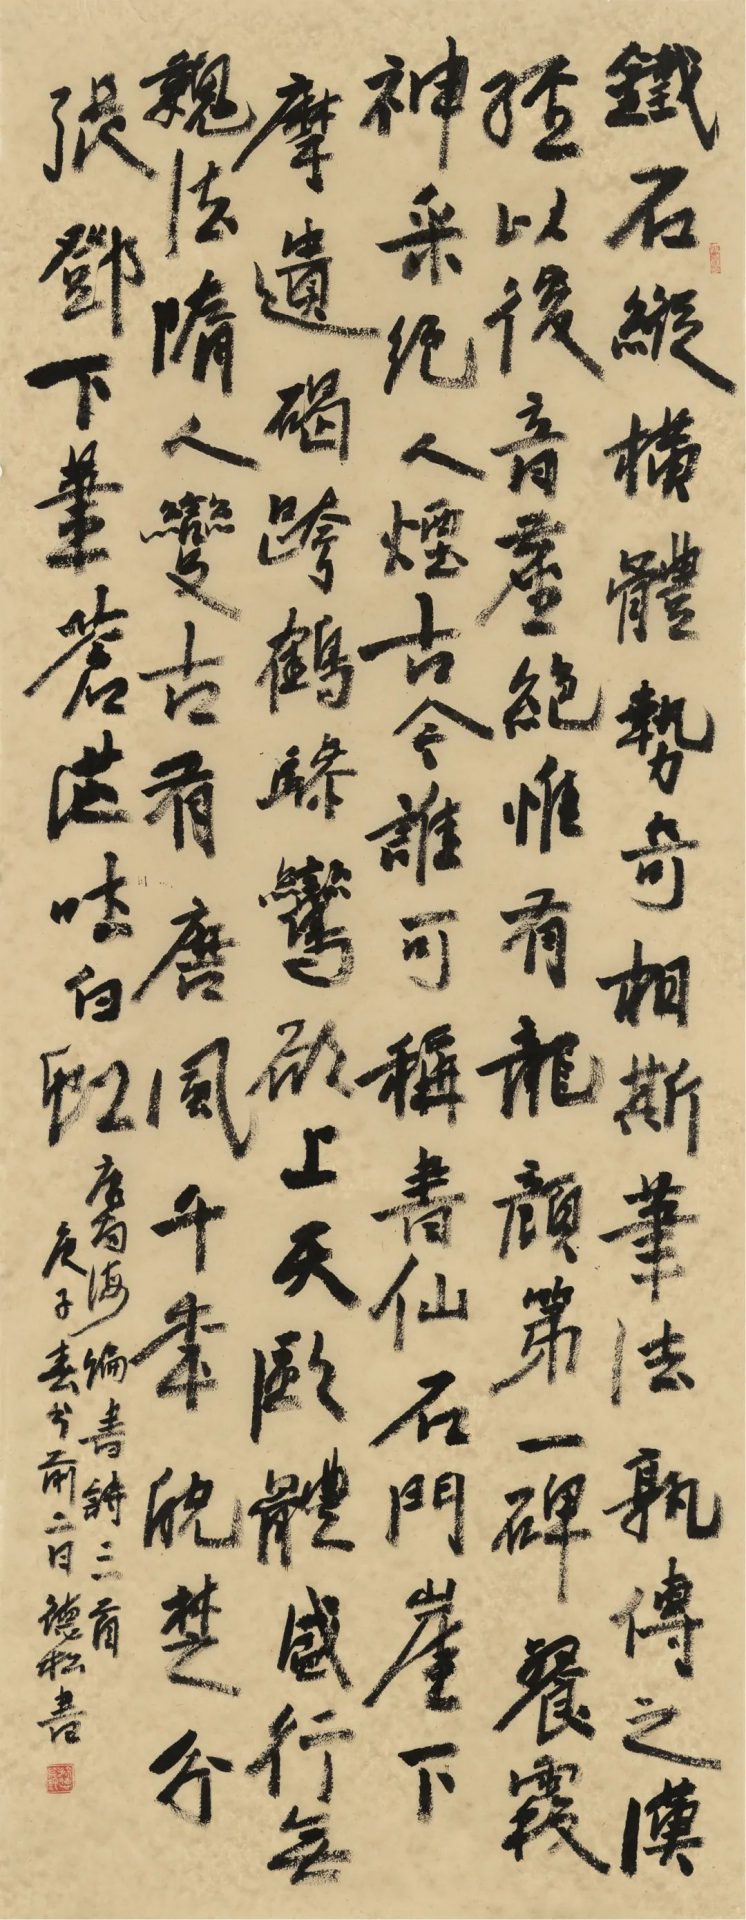 鐵石縱橫體勢奇相斯筆法孰傳之漢
經以後音塵絕惟有龍顏第一碑餐霞
神采絕人煙古今誰可稱書仙石門崖下
摩遺碣跨鶴驂鸞欲上天歐體盛行無
魏法隋人變古有唐風千年皖楚分
張鄧下筆蒼茫吐白虹
康南海論書詩三首
庚子春分前二日德松書